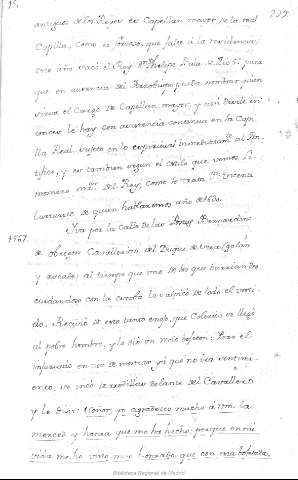 15.
239.
antiguo de los Reyes es Capellan mayor de la real
Capilla, como es forzoso, que falte á la residencia,
este año sacó el Rey Dn. Phelipe Bula de Pio 5.º para
que en ausencia del Arzobispo pueda nombrar quien
sirva el cargo de Capellan mayor, y asi desde en-
tonces le hay con asistencia continua en la Cap
lla Real sujeto en lo espiritual inmediatamte. al Pon-
tifice, y es tambien segun el estilo que vemos Li-
mosnero mor. del Rey, como lo trata
de quien hablaremos año de
1567.
Iva por la calle de las Bernardino
de Obregon Cavallerizo del Duque de Sesa, galan
y aseado; al tiempo que uno de los que barriendo,
con la escoba le salpicó de lodo el vesti-
do. Recivió de esto tanto enojo, que Colerico se llegó
al pobre hombre, y le dió un mui bofeton: Pero el
en vez de mostrar ya que no ira sentimi-
ento, se hincó de rodillas delante del Cavallero
y le dixo: Señor, yo agradezco mucho á Vm. la
merced y honra que me ha hecho; porque en mi
vida me he visto mas honrado, que con esta bofetada,
Biblioteca Regional de Madrid